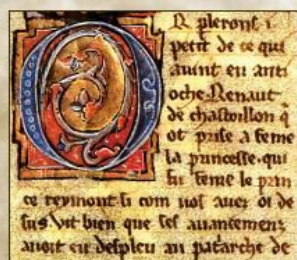 R plerons i
petit de ce qui
auint en anti
oche Renaut
de chastoillon q
ot prise a feme
la princesse. qui
fu feme le prin
ce reymont si com uos auez oi de
sus. Vit bien que ses auancemenz
auoit eu despleu au patarche de